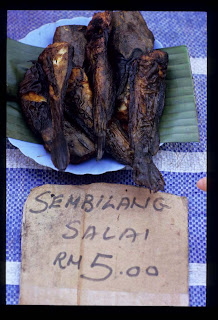 SEMBILANG
SALAI
RM 5.00